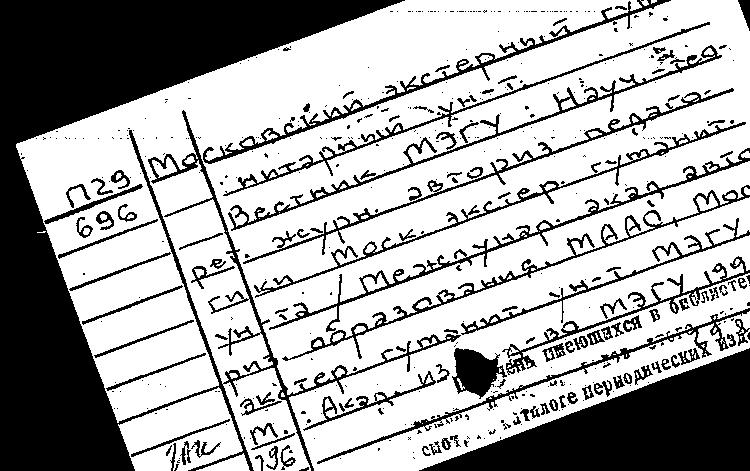 П29
696
Московский экстерный гум
нитарный ун-т.
Вестник МЭГУ : Науч.-тео-
рет. журн. авториз. педаго-
гики Моск. экстер. гуманит.
ун-та / Междунар. акад. авто
риз. образования, МААО, Мос
экстер. гуманит. ун-т. МЭГУ.
М. : Акад. изд-во МЭГУ, 199
имеющихся в библиотек
смотр. каталоге периодических изда
296